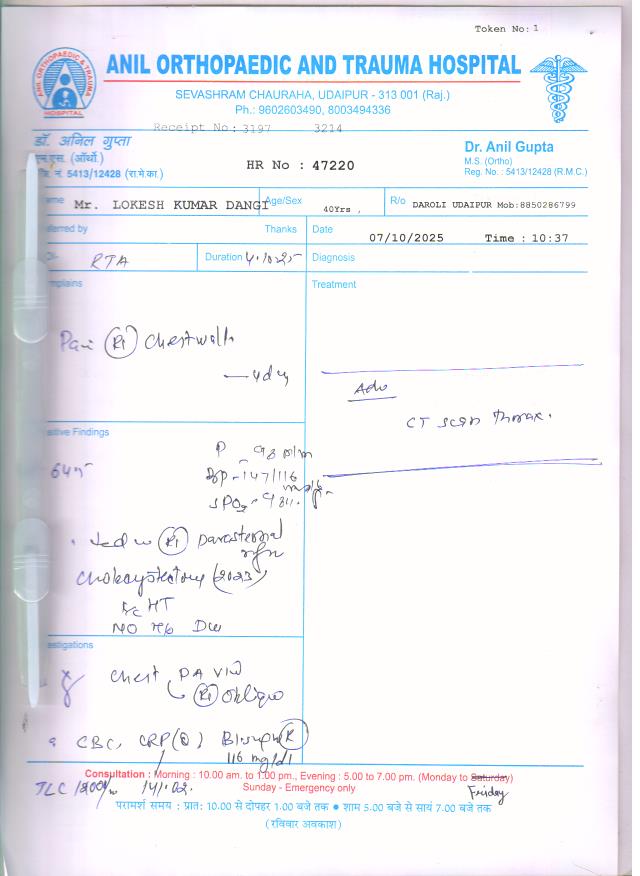 Token No: 1
ANIL ORTHOPAEDIC & TRAUMA
HOSPITAL
ANIL ORTHOPAEDIC AND TRAUMA HOSPITAL
SEVASHRAM CHAURAHA, UDAIPUR - 313 001 (Raj.)
Ph.: 9602603490, 8003494336
Receipt No: 3197 3214
डॉ. अनिल गुप्ता
एम.एस. (ऑर्थो)
नं. 5413/12428 (रा.मे.का.)
HR No : 47220
Dr. Anil Gupta
M.S. (Ortho)
Reg. No. : 5413/12428 (R.M.C.)
ame Mr. LOKESH KUMAR DANGI Age/Sex 40Yrs , R/o DAROLI UDAIPUR Mob:8850286799
eferred by Thanks Date 07/10/2025 Time : 10:37
RTA Duration 4.10.25 Diagnosis
mplains Treatment
Pain (Rt) Chest wall
— 4 day
Adv
CT scan thorax.
sitive Findings
P - 98 m/m
Bp - 147/116
SPO2 - 98%
(Rt) parasternal
(2023)
HT
NO H/o DM
estigations
Chest PA View
(Rt) Oblique
CBC, CRP(Q)
116 mg/dl
Consultation : Morning : 10.00 am. to 1.00 pm., Evening : 5.00 to 7.00 pm. (Monday to Saturday)
Friday
Sunday - Emergency only
TLC
परामर्श समय : प्रात: 10.00 से दोपहर 1.00 बजे तक • शाम 5.00 बजे से सायं 7.00 बजे तक
(रविवार अवकाश)